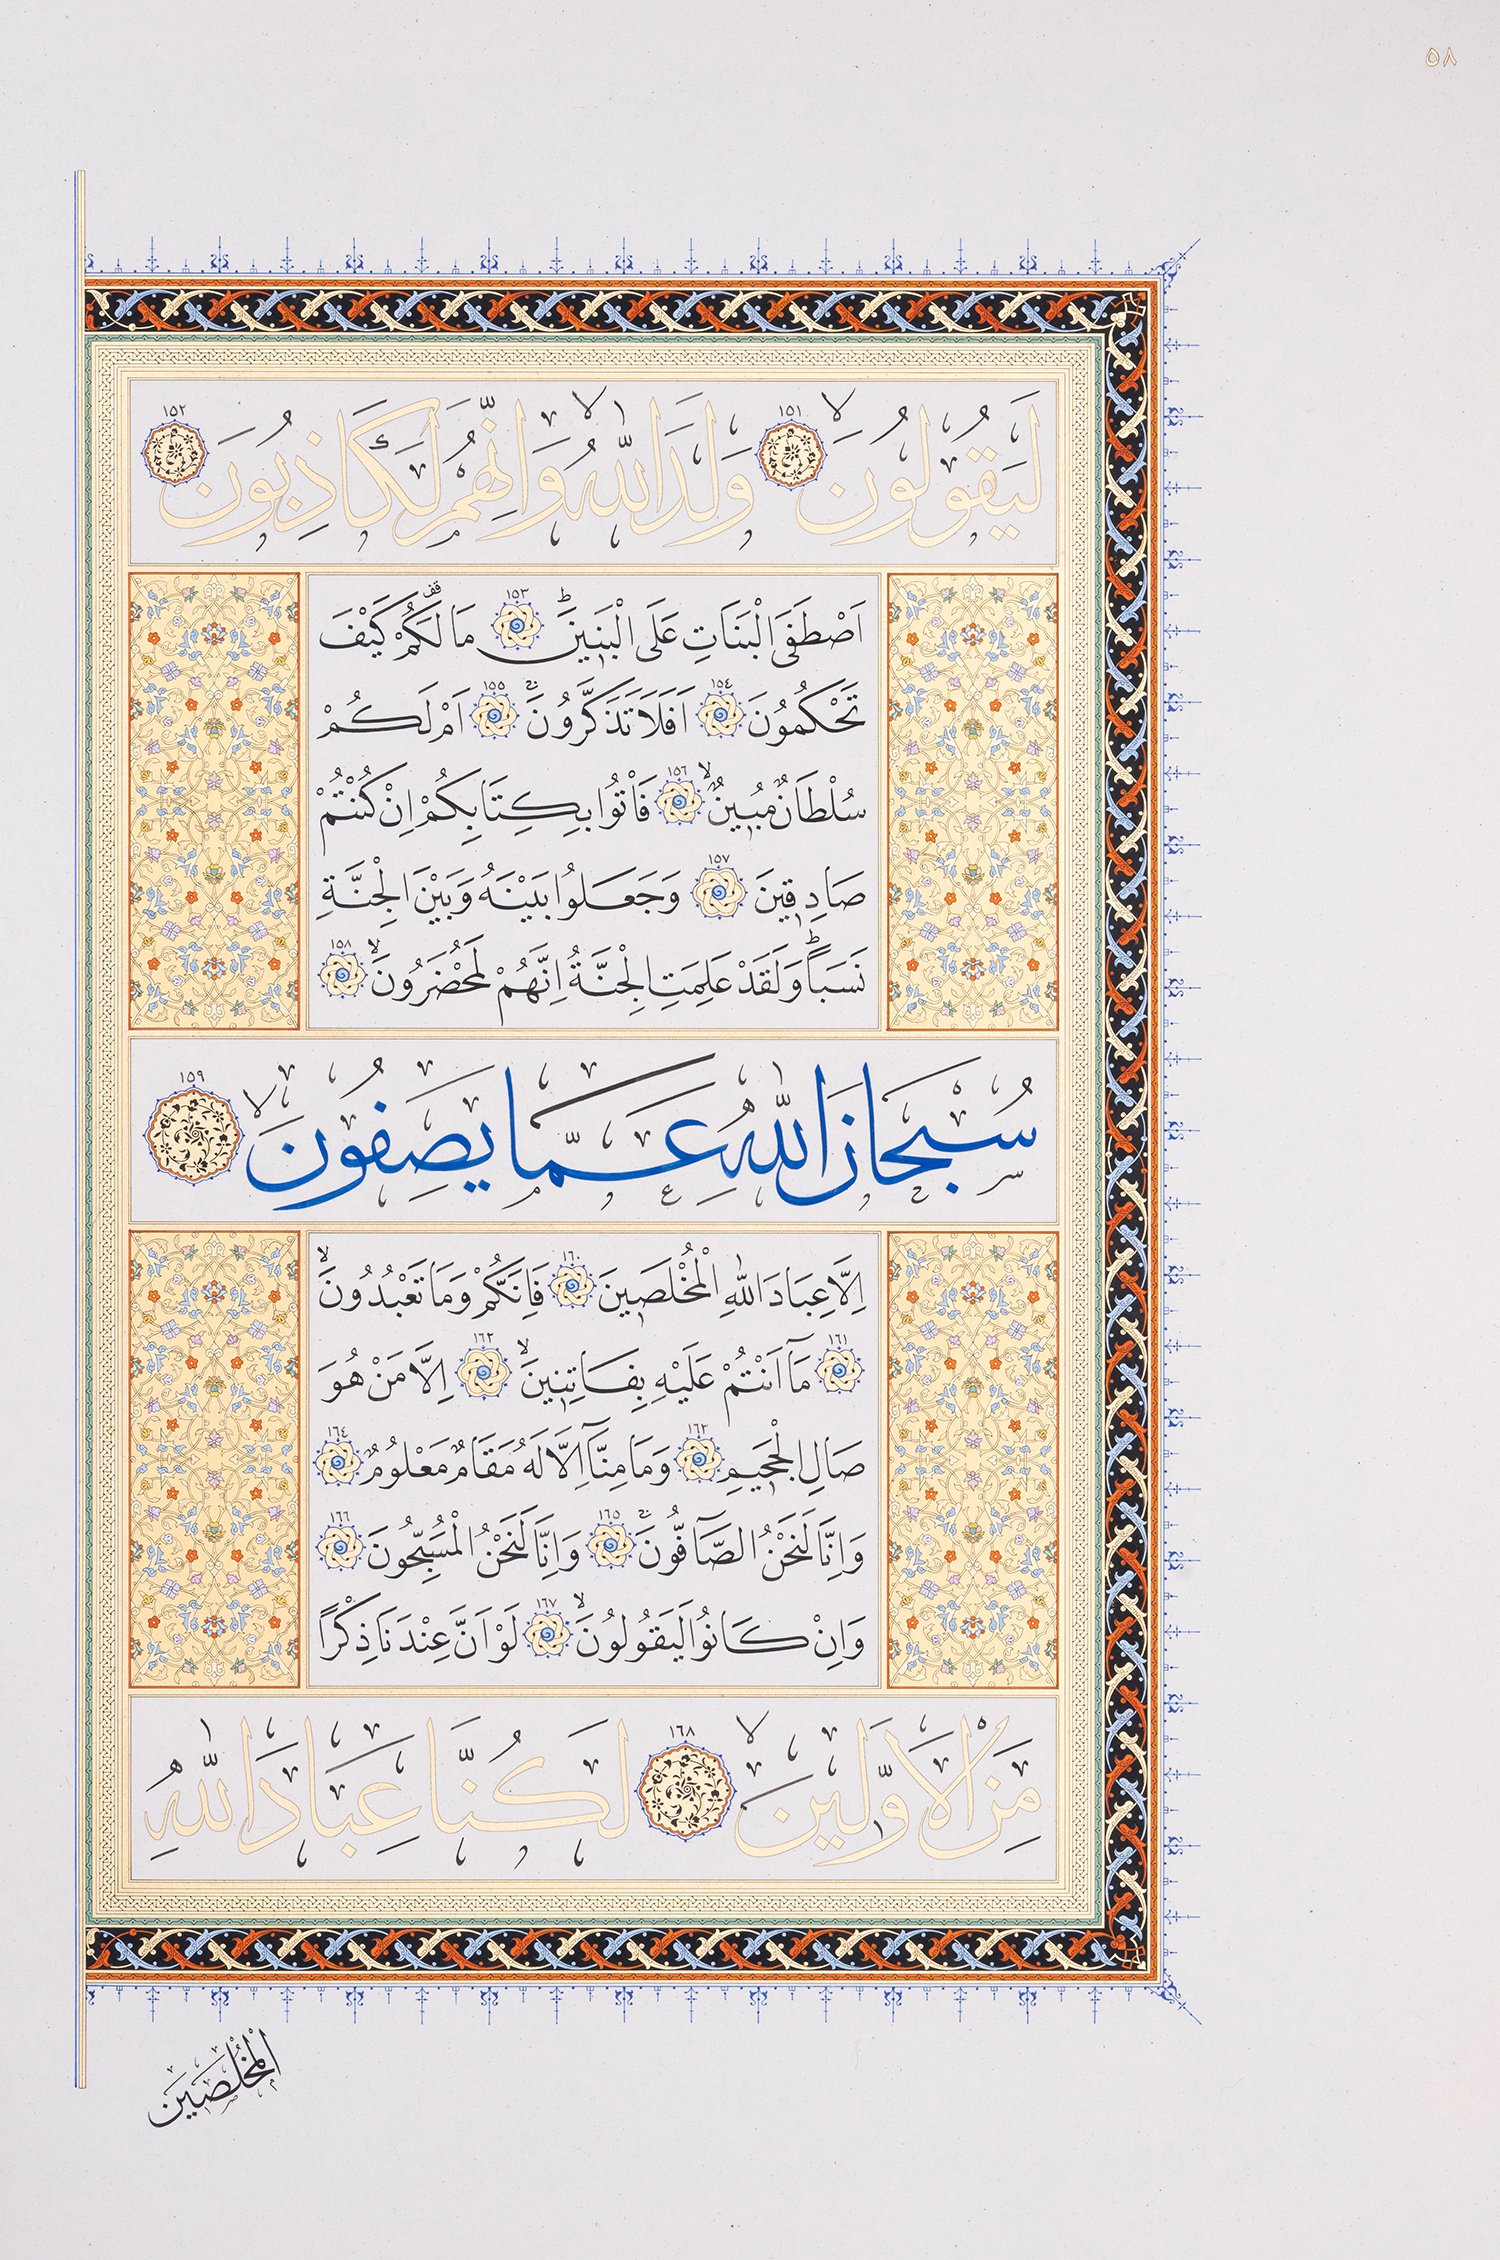 ٥٨
لَيَقُولُونَۙ ١٥١ وَلَدَ اللّٰهُۙ وَاِنَّهُمْ لَكَاذِبُونَ ١٥٢
اَصْطَفَى الْبَنَاتِ عَلَى الْبَنِينَۜ ١٥٣ مَا لَكُمْ۠ كَيْفَ
تَحْكُمُونَ ١٥٤ اَفَلَا تَذَكَّرُونَۚ ١٥٥ اَمْ لَكُمْ
سُلْطَانٌ مُبِينٌۙ ١٥٦ فَأْتُوا بِكِتَابِكُمْ اِنْ كُنْتُمْ
صَادِقِينَ ١٥٧ وَجَعَلُوا بَيْنَهُ وَبَيْنَ الْجِنَّةِ
نَسَبًاۜ وَلَقَدْ عَلِمَتِ الْجِنَّةُ اِنَّهُمْ لَمُحْضَرُونَۙ ١٥٨
سُبْحَانَ اللّٰهِ عَمَّا يَصِفُونَۙ ١٥٩
اِلَّا عِبَادَ اللّٰهِ الْمُخْلَصِينَ ١٦٠ فَاِنَّكُمْ وَمَا تَعْبُدُونَۙ
١٦١ مَٓا اَنْتُمْ عَلَيْهِ بِفَاتِنِينَۙ ١٦٢ اِلَّا مَنْ هُوَ
صَالِ الْجَحِيمِ ١٦٣ وَمَا مِنَّٓا اِلَّا لَهُ مَقَامٌ مَعْلُومٌ ١٦٤
وَاِنَّا لَنَحْنُ الصَّٓافُّونَۚ ١٦٥ وَاِنَّا لَنَحْنُ الْمُسَبِّحُونَ ١٦٦
وَاِنْ كَانُوا لَيَقُولُونَۙ ١٦٧ لَوْ اَنَّ عِنْدَنَا ذِكْرًا
مِنَ الْاَوَّلِينَۙ ١٦٨ لَكُنَّا عِبَادَ اللّٰهِ
الْمُخْلَصِينَ